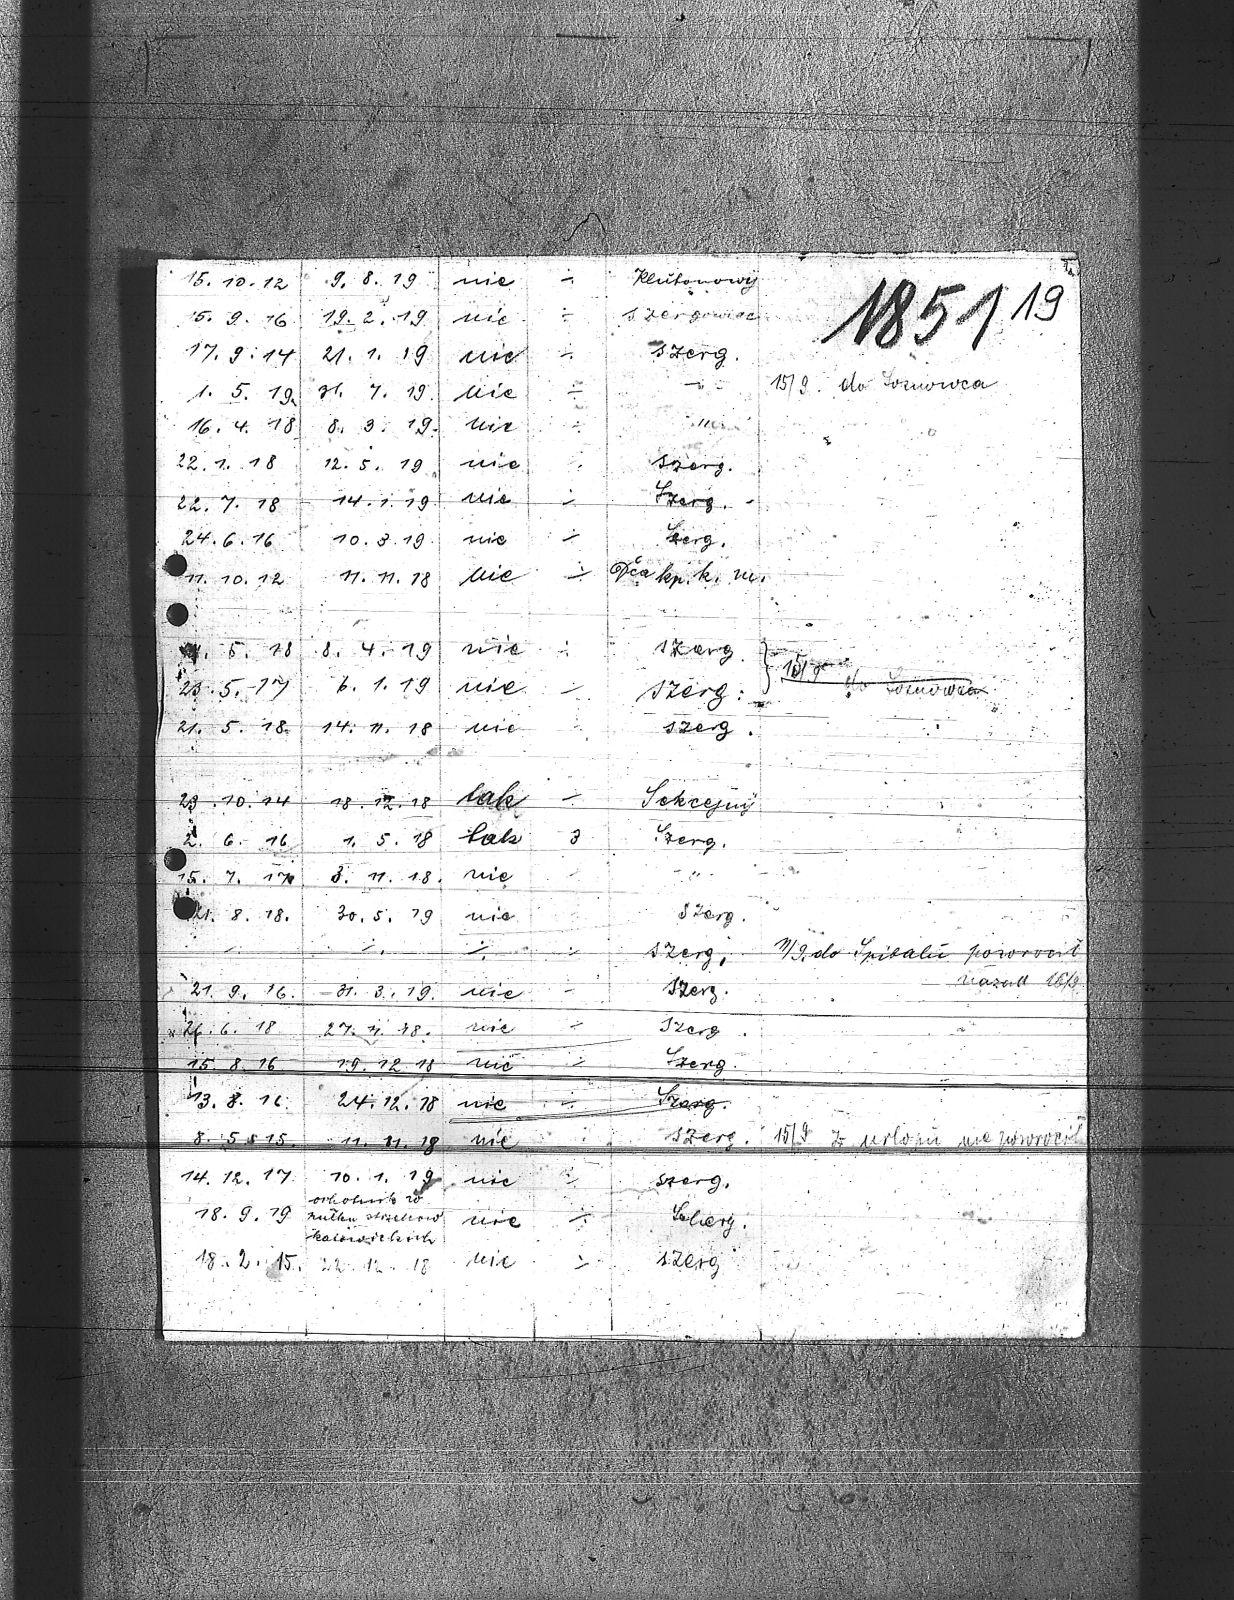 15. 10. 12 9. 8. 19 nie ÷ Plutonowy
1851/19
15. 9. 16 19. 2. 19 nie ÷ szergowiec
17. 9. 14 21. 1. 19 nie ÷ szerg.
1. 5. 19. 31. 7. 19. nie ÷ -"- 15/9. do Sosnowca
16. 4. 18 8. 3. 19. nie ÷ "
22. 1. 18 12. 5. 19 nie ÷ szerg.
22. 7. 18 14. 1. 19 nie ÷ Szerg.
24. 6. 16 10. 3. 19 nie ÷ Szerg.
11. 10. 12 11. 11. 18 nie ÷ Dca kp. k. m.
5. 18 8. 4. 19 nie ÷ szerg.
23. 5. 17 6. 1. 19 nie ÷ szerg. 15/9 do Sosnowca
21. 5. 18. 14. 11. 18 nie szerg.
29. 10. 14 18. 12. 18 tak ÷ Sekcyjny
2. 6. 16 1. 5. 18 tak 3 Szerg.
15. 7. 17 3. 11. 18. nie - -"-
21. 8. 18. 30. 5. 19 nie Szerg.
÷ ÷ ÷ szerg. 11/9. do Spitalu powrocił
21. 9. 16. 31. 3. 19. nie ÷ Szerg. nazad 16/9
6. 18 27. 11. 18. nie ÷ Szerg.
15. 8. 16 19. 12. 18 nie ÷ Szerg.
13. 8. 16. 24. 12. 18 nie ÷ Szerg.
8. 5. 15. 11. 11. 18 nie szerg. 15/9 z urlopu nie powrocił
14. 12. 17. 10. 1. 19 nie ÷ szerg.
ochotnik w
18. 9. 19 pułku strzelców nie ÷ Szerg.
18. 2. 15. 22. 12. 18 nie ÷ szerg